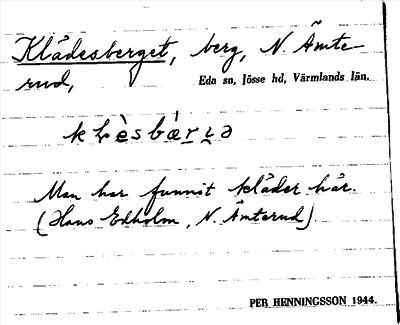 Klädesberget, berg, N. Ämte-
rud,
Eda sn, Jösse hd, Värmlands län.
Man har funnit kläder här.
(Hans Edholm, N. Ämterud)
PER HENNINGSSON 1944.